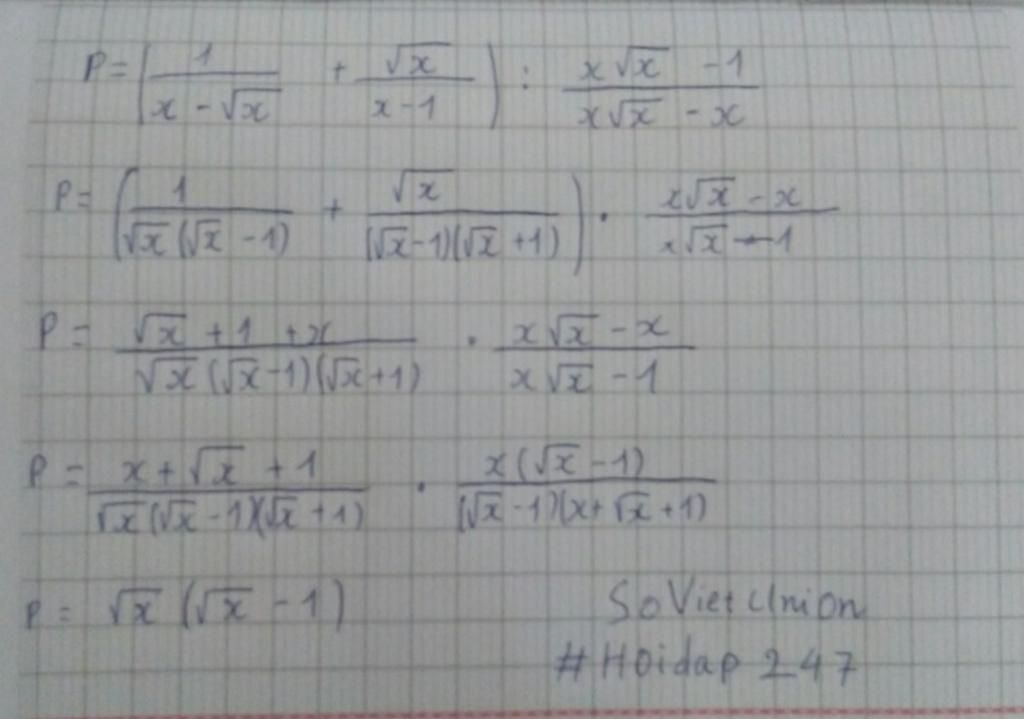 P = (1/(x - √x) + √x/(x - 1)) : (x√x - 1)/(x√x - x)
P = (1/(√x(√x - 1)) + √x/((√x - 1)(√x + 1))) . (x√x - x)/(x√x - 1)
P = (√x + 1 + x)/(√x(√x - 1)(√x + 1)) . (x√x - x)/(x√x - 1)
P = (x + √x + 1)/(√x(√x - 1)(√x + 1)) . x(√x - 1)/((√x - 1)(x + √x + 1))
P = √x (√x - 1)
SoViet Union
#Hoidap 247